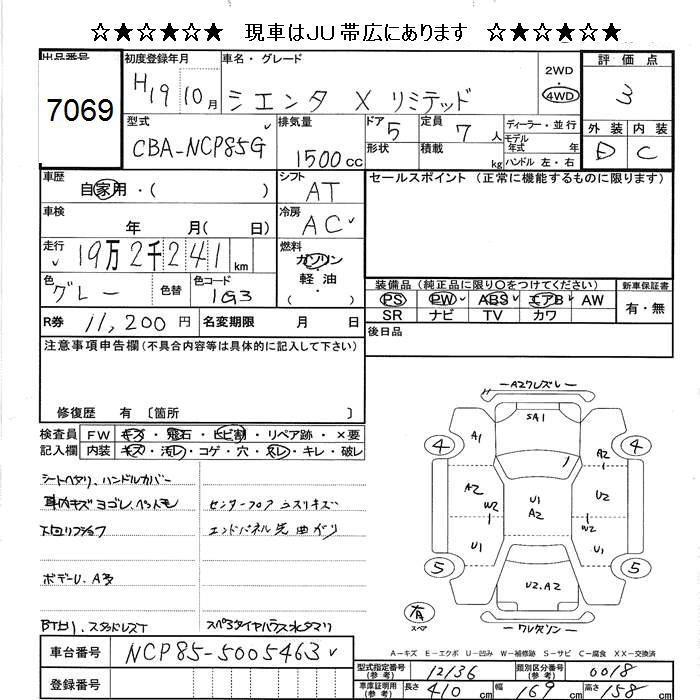 ☆★☆★☆★ 現車はJU帯広にあります ☆★☆★☆★
出品番号
7069
初度登録年月
H19 10月
車名・グレード
シエンタ X リミテッド
2WD
・
4WD
評価点
3
外装 内装
D C
型式
CBA-NCP85G
排気量
1500cc
ドア 5
形状
定員 7 人
積載 kg
ディーラー・並行
モデル
年式 年
ハンドル 左・右
車歴
自家用・( )
シフト
AT
セールスポイント (正常に機能するものに限ります)
車検
年 月( 日)
冷房
AC
走行
19万2千241km
燃料
ガソリン
・
軽油
色
グレー
色替
色コード
1G3
装備品(純正品に限り○をつけてください)
PS PW ABS エアB AW
SR ナビ TV カワ
新車保証書
有・無
R券 11,200円 名変期限 月 日
後日品
注意事項申告欄(不具合内容等は具体的に記入して下さい)
修復歴 有〔箇所 〕
検査員
記入欄
FW キズ・飛石・ヒビ割・リペア跡・×要
内装 キズ・汚レ・コゲ・穴・スレ・キレ・破レ
シートヘタリ、ハンドルカバー
車内キズ ヨゴレ、ペットモ
センターフロアコスリキズ
エンドパネル先曲がり
ボデーU、A多
スペアタイヤハウス水タマリ
A2ワレズレ
SA1
A1
A2
4
4
A2
U2
U1
A2
W2
W2
U1
U1
5
5
U2.A2
有
スペア
A-キズ E-エクボ U-凹み W-補修跡 S-サビ C-腐食 XX-交換済
車台番号 NCP85-5005463
登録番号
型式指定番号
(参考)
12136
類別区分番号
(参考)
0018
車庫証明用
(参考)
長さ 410 cm 幅 169 cm 高さ 158 cm